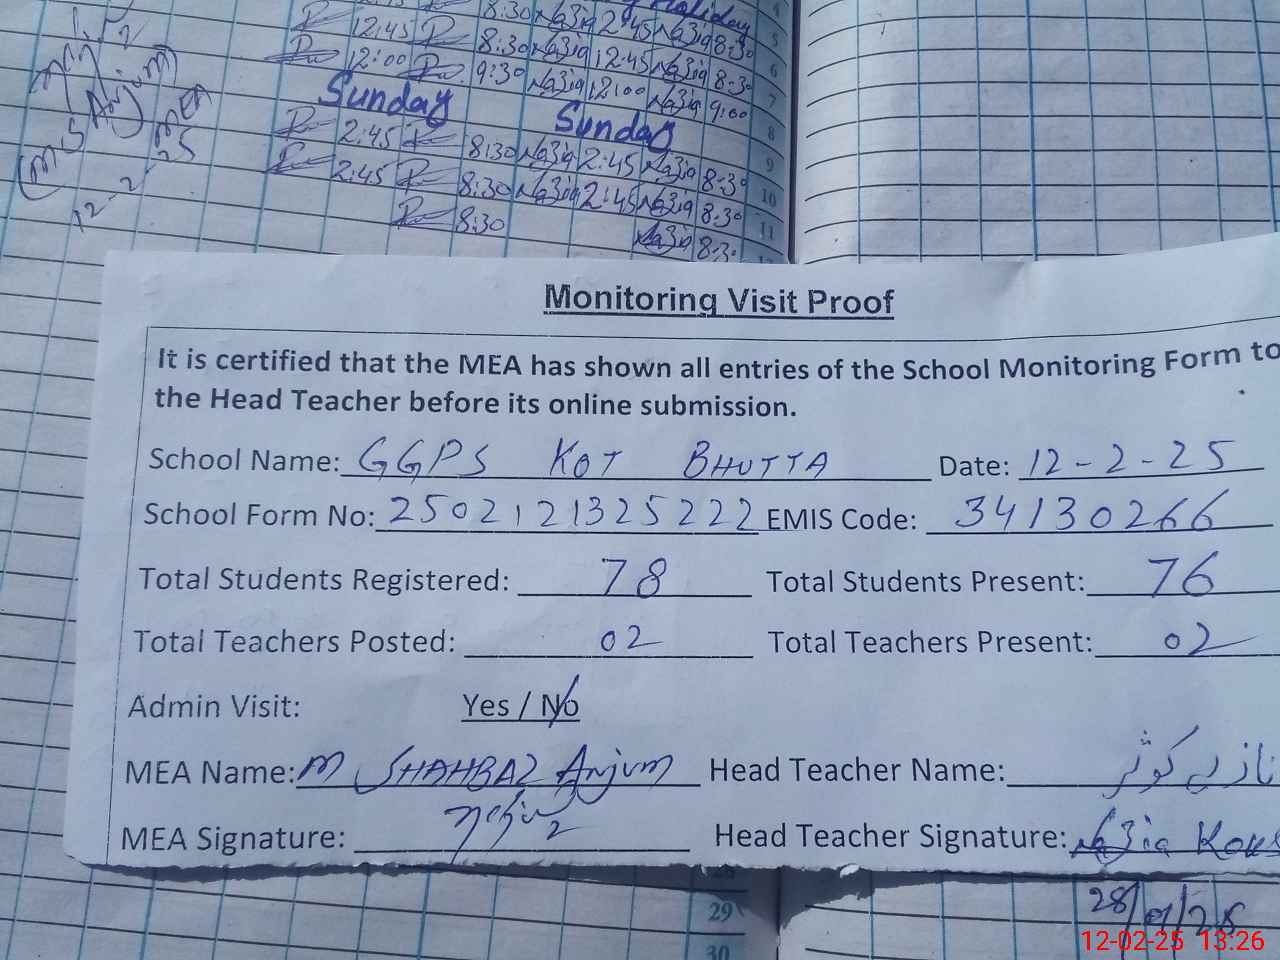 Holiday
12:45 8:30 Nazia 2:45 Nazia 8:30 5
12:00 8:30 Nazia 12:45 Nazia 8:30 6
9:30 Nazia 12:00 Nazia 9:00 7
Sunday Sunday 8
2:45 8:30 Nazia 2:45 Nazia 8:30 9
2:45 8:30 Nazia 2:45 Nazia 8:30 10
8:30 Nazia 8:30 11
(M S Anjum)
MEA
12-2-25
Monitoring Visit Proof
It is certified that the MEA has shown all entries of the School Monitoring Form to
the Head Teacher before its online submission.
School Name: GGPS KOT BHUTTA Date: 12-2-25
School Form No: 2502121325222 EMIS Code: 34130266
Total Students Registered: 78 Total Students Present: 76
Total Teachers Posted: 02 Total Teachers Present: 02
Admin Visit: Yes / No
MEA Name: M SHAHBAZ Anjum Head Teacher Name: نازیہ کوثر
MEA Signature: Head Teacher Signature: Nazia Kous
29
30
28/01/25
12-02-25 13:26